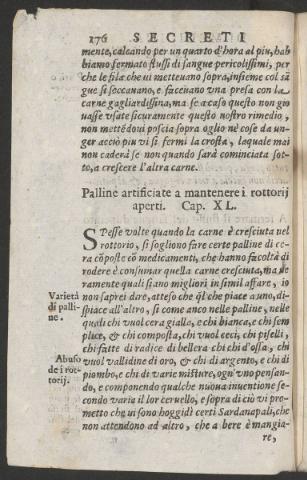 176 SECRETI
mente, calcando per un quarto d'hora al piu, hab
biamo fermato flussi di sangue pericolissimi, per
che le fila che ui metteuano sopra, insieme col sã
gue si seccauano, e faceuano vna presa con la
carne gagliardissima, ma se a caso questo non gio
uasse vsate sicuramente questo nostro rimedio,
non mettẽdoui poscia sopra oglio nè cose da un-
ger acciò piu vi si fermi la crosta, laquale mai
non caderà se non quando sarà cominciata sot-
to, a crescere l'altra carne.
Palline artificiate a mantenere i rottorij
aperti. Cap. XL.
SPesse volte quando la carne è cresciuta nel
rottorio, si sogliono fare certe palline di ce-
ra cõposte cõ medicamenti, che hanno facoltà di
rodere è consumar quella carne cresciuta, ma ue
ramente quali siano migliori in simil affare, io
Varietà
di palli-
ne.
non saprei dare, atteso che q̃l che piace a uno, di-
spiace all'altro, si come anco nelle palline, nelle
quali chi vuol cera gialla, e chi bianca, e chi sem
plice, & chi composta, chi vuol ceci, chi piselli,
chi fatte di radice di bellera chi chi d'ossa, chi
Abuso
de i rot-
torij.
vuol vallidine di oro, & chi di argento, e chi di
piombo, e chi di varie misture, ogn'vno pensan-
do, e componendo qualche nuoua inuentione se
condo varia il lor ceruello, e sopra di ciò vi pro-
metto che ui sono hoggidì certi Sardanapali, che
non attendono ad altro, che a bere è mangia-
re,